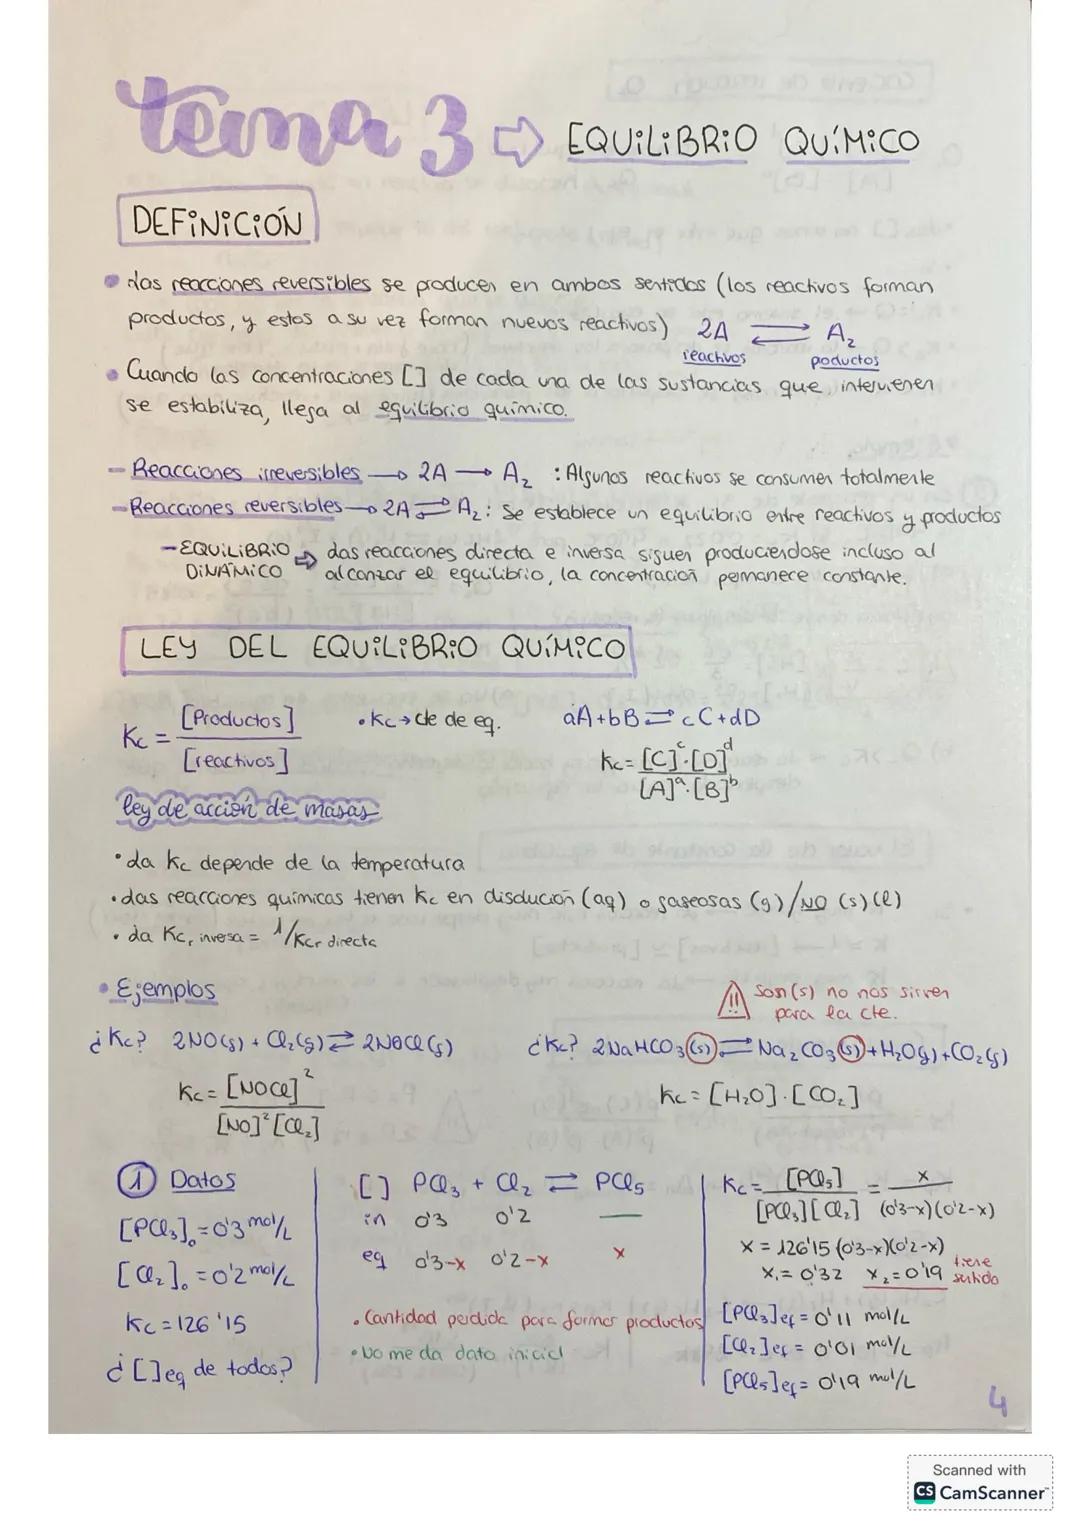 tema 3 ⇨ EQUiLiBRiO QUíMiCO
DEFiNiCiÓN
• Las reacciones reversibles se producen en ambos sentidos (los reactivos forman
productos, y estos a su vez forman nuevos reactivos) 2A ⇌ A₂
reactivos poductos
• Cuando las concentraciones [] de cada una de las sustancias que intervienen
se estabiliza, llega al equilibrio químico.
- Reacciones irreversibles → 2A → A₂ : Algunos reactivos se consumen totalmente
- Reacciones reversibles → 2A ⇌ A₂ : Se establece un equilibrio entre reactivos y productos
- EQUiLiBRiO DiNÁMiCO ⇨ Las reacciones directa e inversa siguen produciendose incluso al
alcanzar el equilibrio, la concentración permanece constante.
LEY DEL EQUiLiBRiO QUíMiCO
Kc = [Productos] / [reactivos] • Kc → cte de eq. aA + bB ⇌ cC + dD
Kc = [C]ᶜ·[D]ᵈ / [A]ᵃ·[B]ᵇ
ley de acción de masas
• La Kc depende de la temperatura
• Las reacciones químicas tienen Kc en disdución (aq) o gaseosas (g) / NO (s) (l)
• La Kc, inversa = 1/Kcr directa
• Ejemplos
⚠ Son (s) no nos sirven
para la cte.
¿Kc? 2NO(g) + Cl₂(g) ⇌ 2NOCl(g) ¿Kc? 2NaHCO₃(s) ⇌ Na₂CO₃(s) + H₂O(g) + CO₂(g)
Kc = [NOCl]² / [NO]² [Cl₂] Kc = [H₂O]·[CO₂]
① Datos
[PCl₃]₀ = 0'3 mol/L
[Cl₂]₀ = 0'2 mol/L
Kc = 126'15
¿[]eq de todos?
[] PCl₃ + Cl₂ ⇌ PCl₅
in 0'3 0'2 —
eq 0'3-x 0'2-x x
• Cantidad perdida para formar productos
• No me da dato inicial
Kc = [PCl₅] / [PCl₃][Cl₂] = x / (0'3-x)(0'2-x)
x = 126'15 (0'3-x)(0'2-x)
x₁ = 0'32 x₂ = 0'19 tiene sentido
[PCl₃]ef = 0'11 mol/L
[Cl₂]ef = 0'01 mol/L
[PCl₅]ef = 0'19 mol/L
4
Scanned with
CS CamScanner